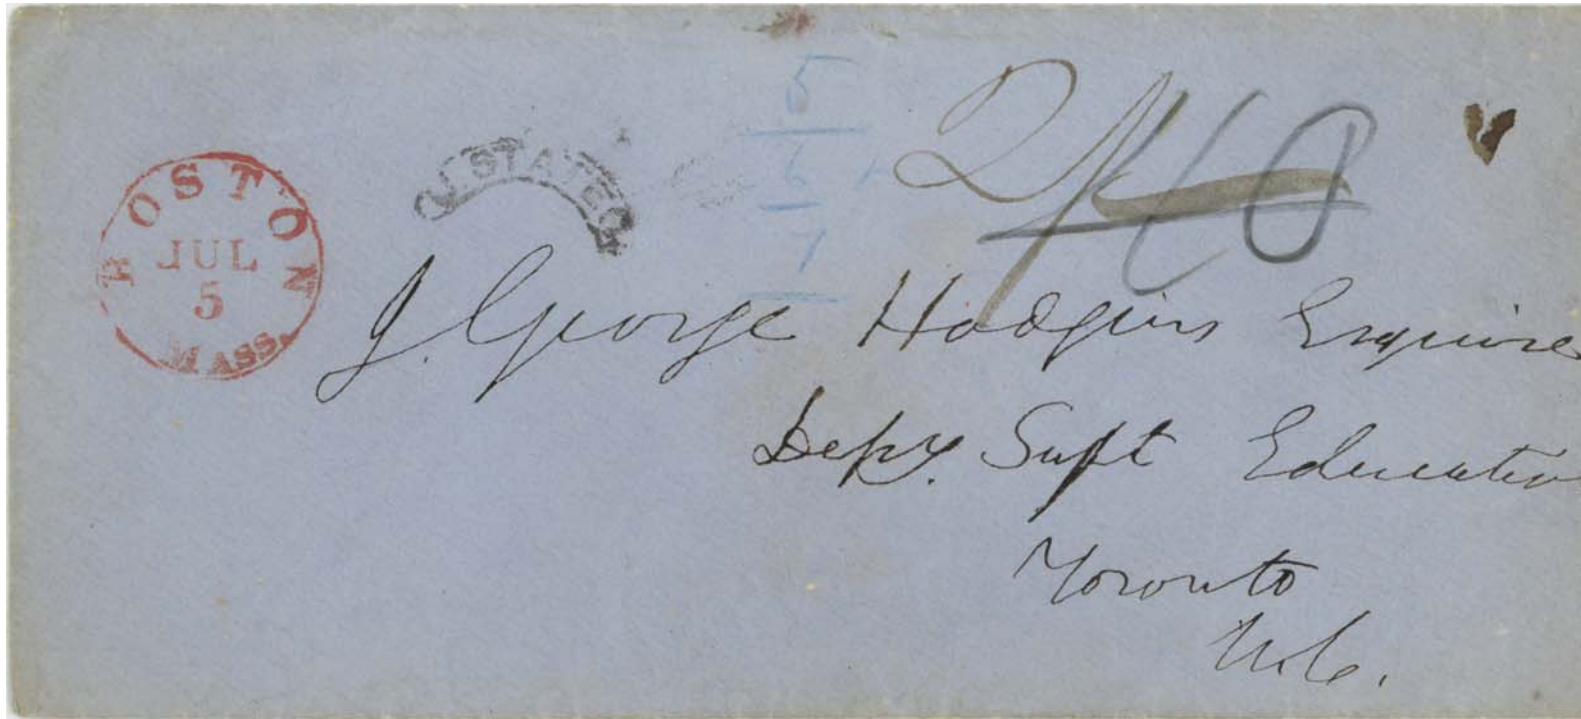 BOSTON
JUL
5
MASS.
U. STATES
5
6
7
J. George Hodgins Esquire
Depy. Supt Education
Toronto
U.C.